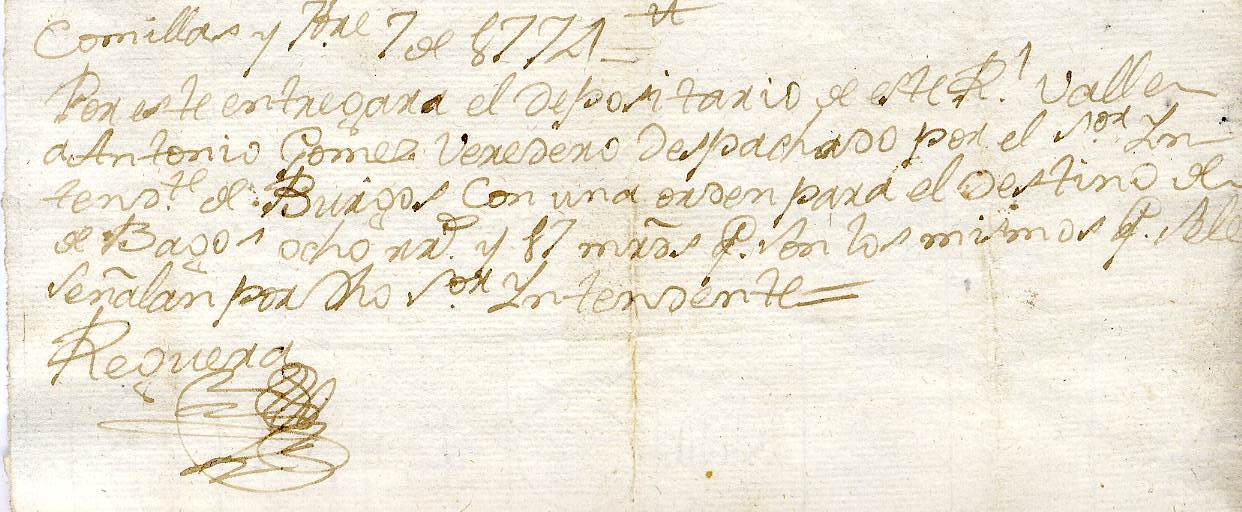 Comillas y 7bre 7 de 1774
Por este entregara el depositario de este Rl. Valle
a Antonio Gomez Veredero despachado por el Sor. Yn
tendte. de Burgos con una orden para el Destino de
de Bagos ocho rrs. y 17 mrds q. son los mismos q. se le
señalan por dho Sor Yntendente
Reguera